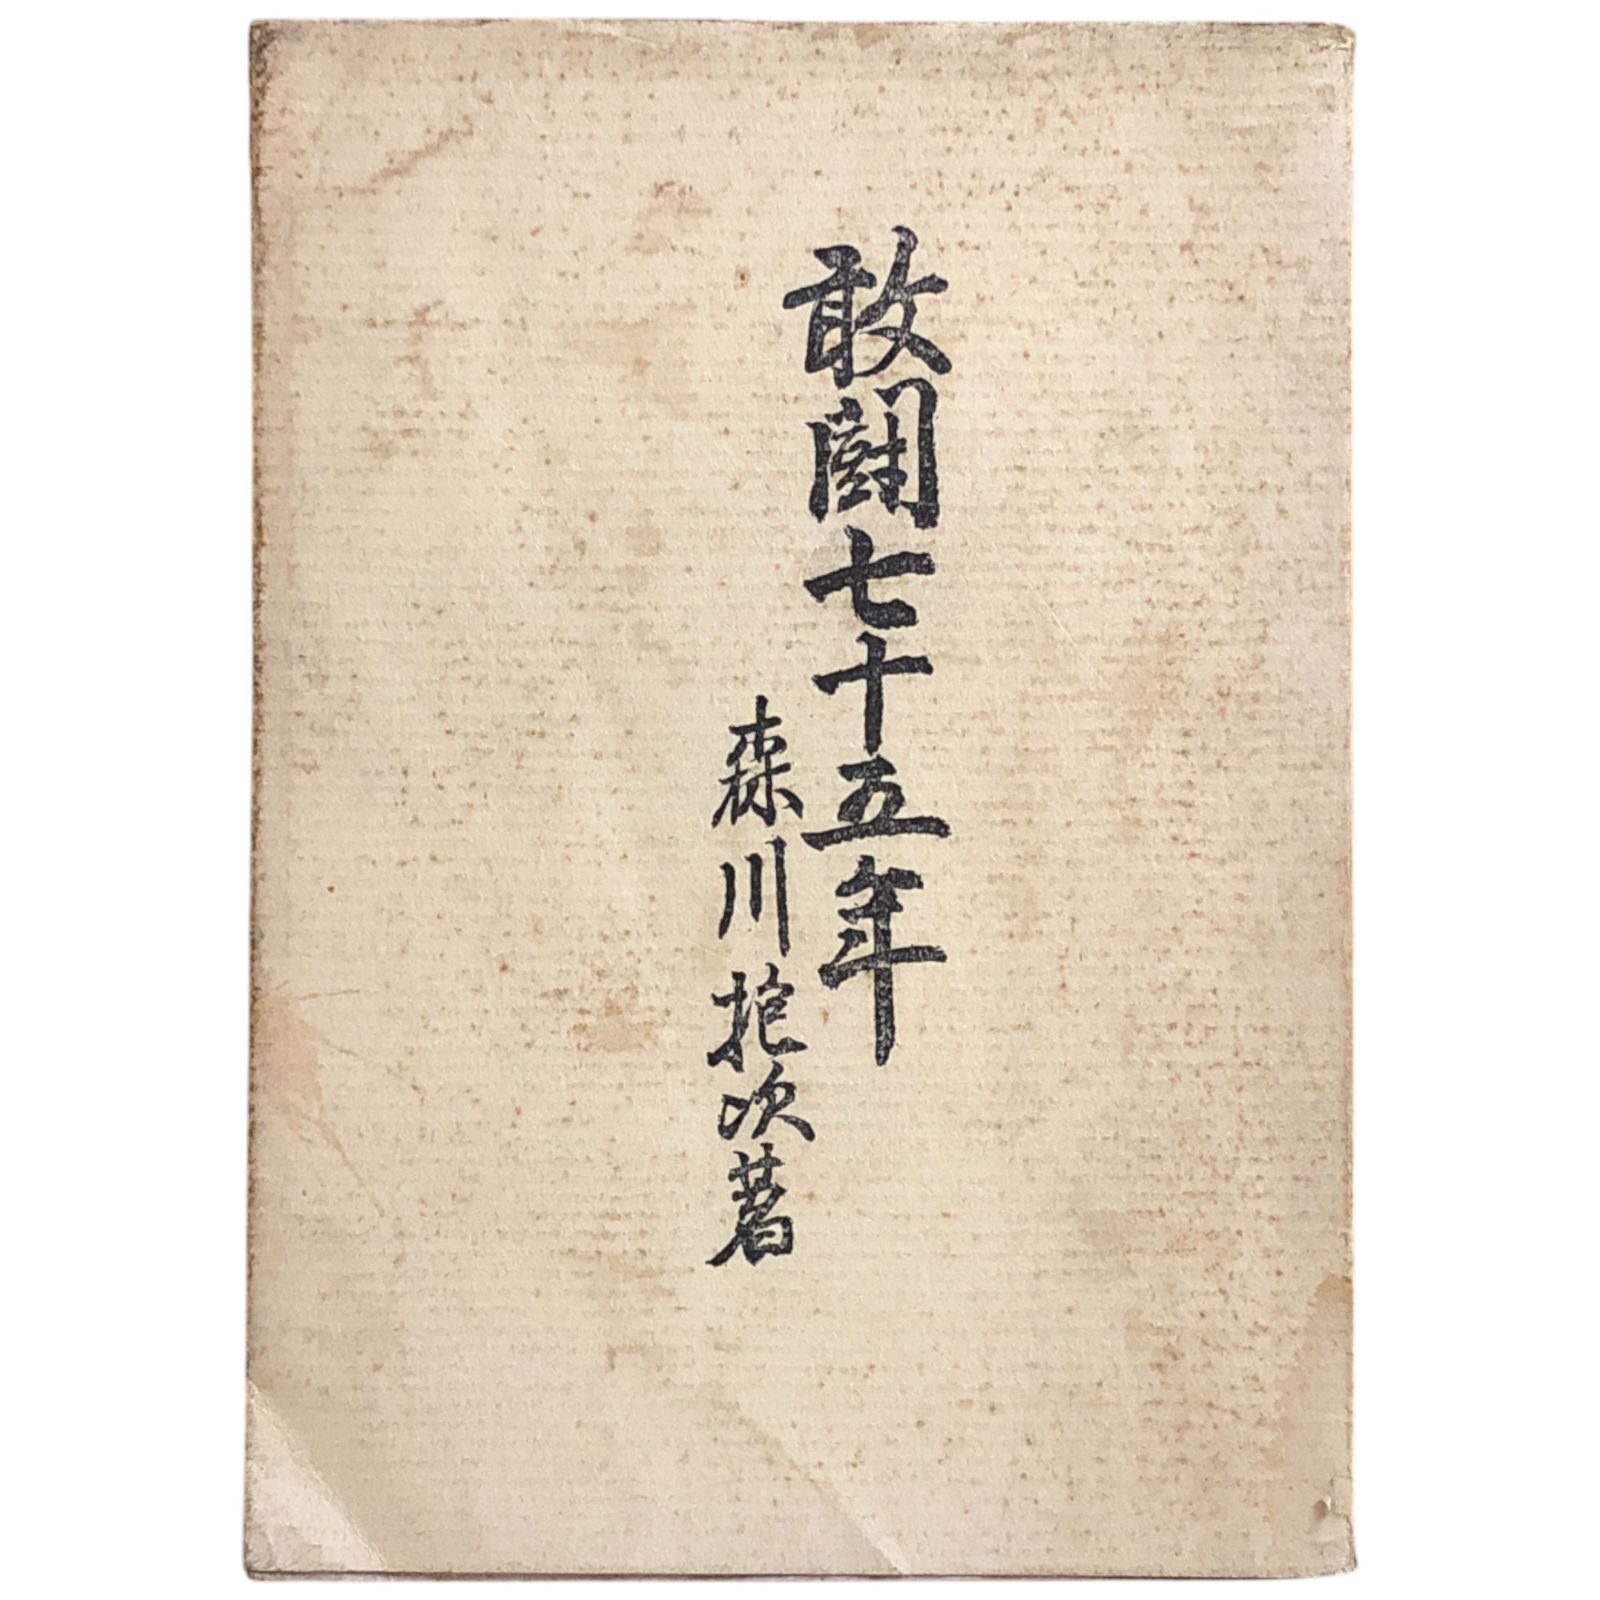 敢闘七十五年
森川抱次著